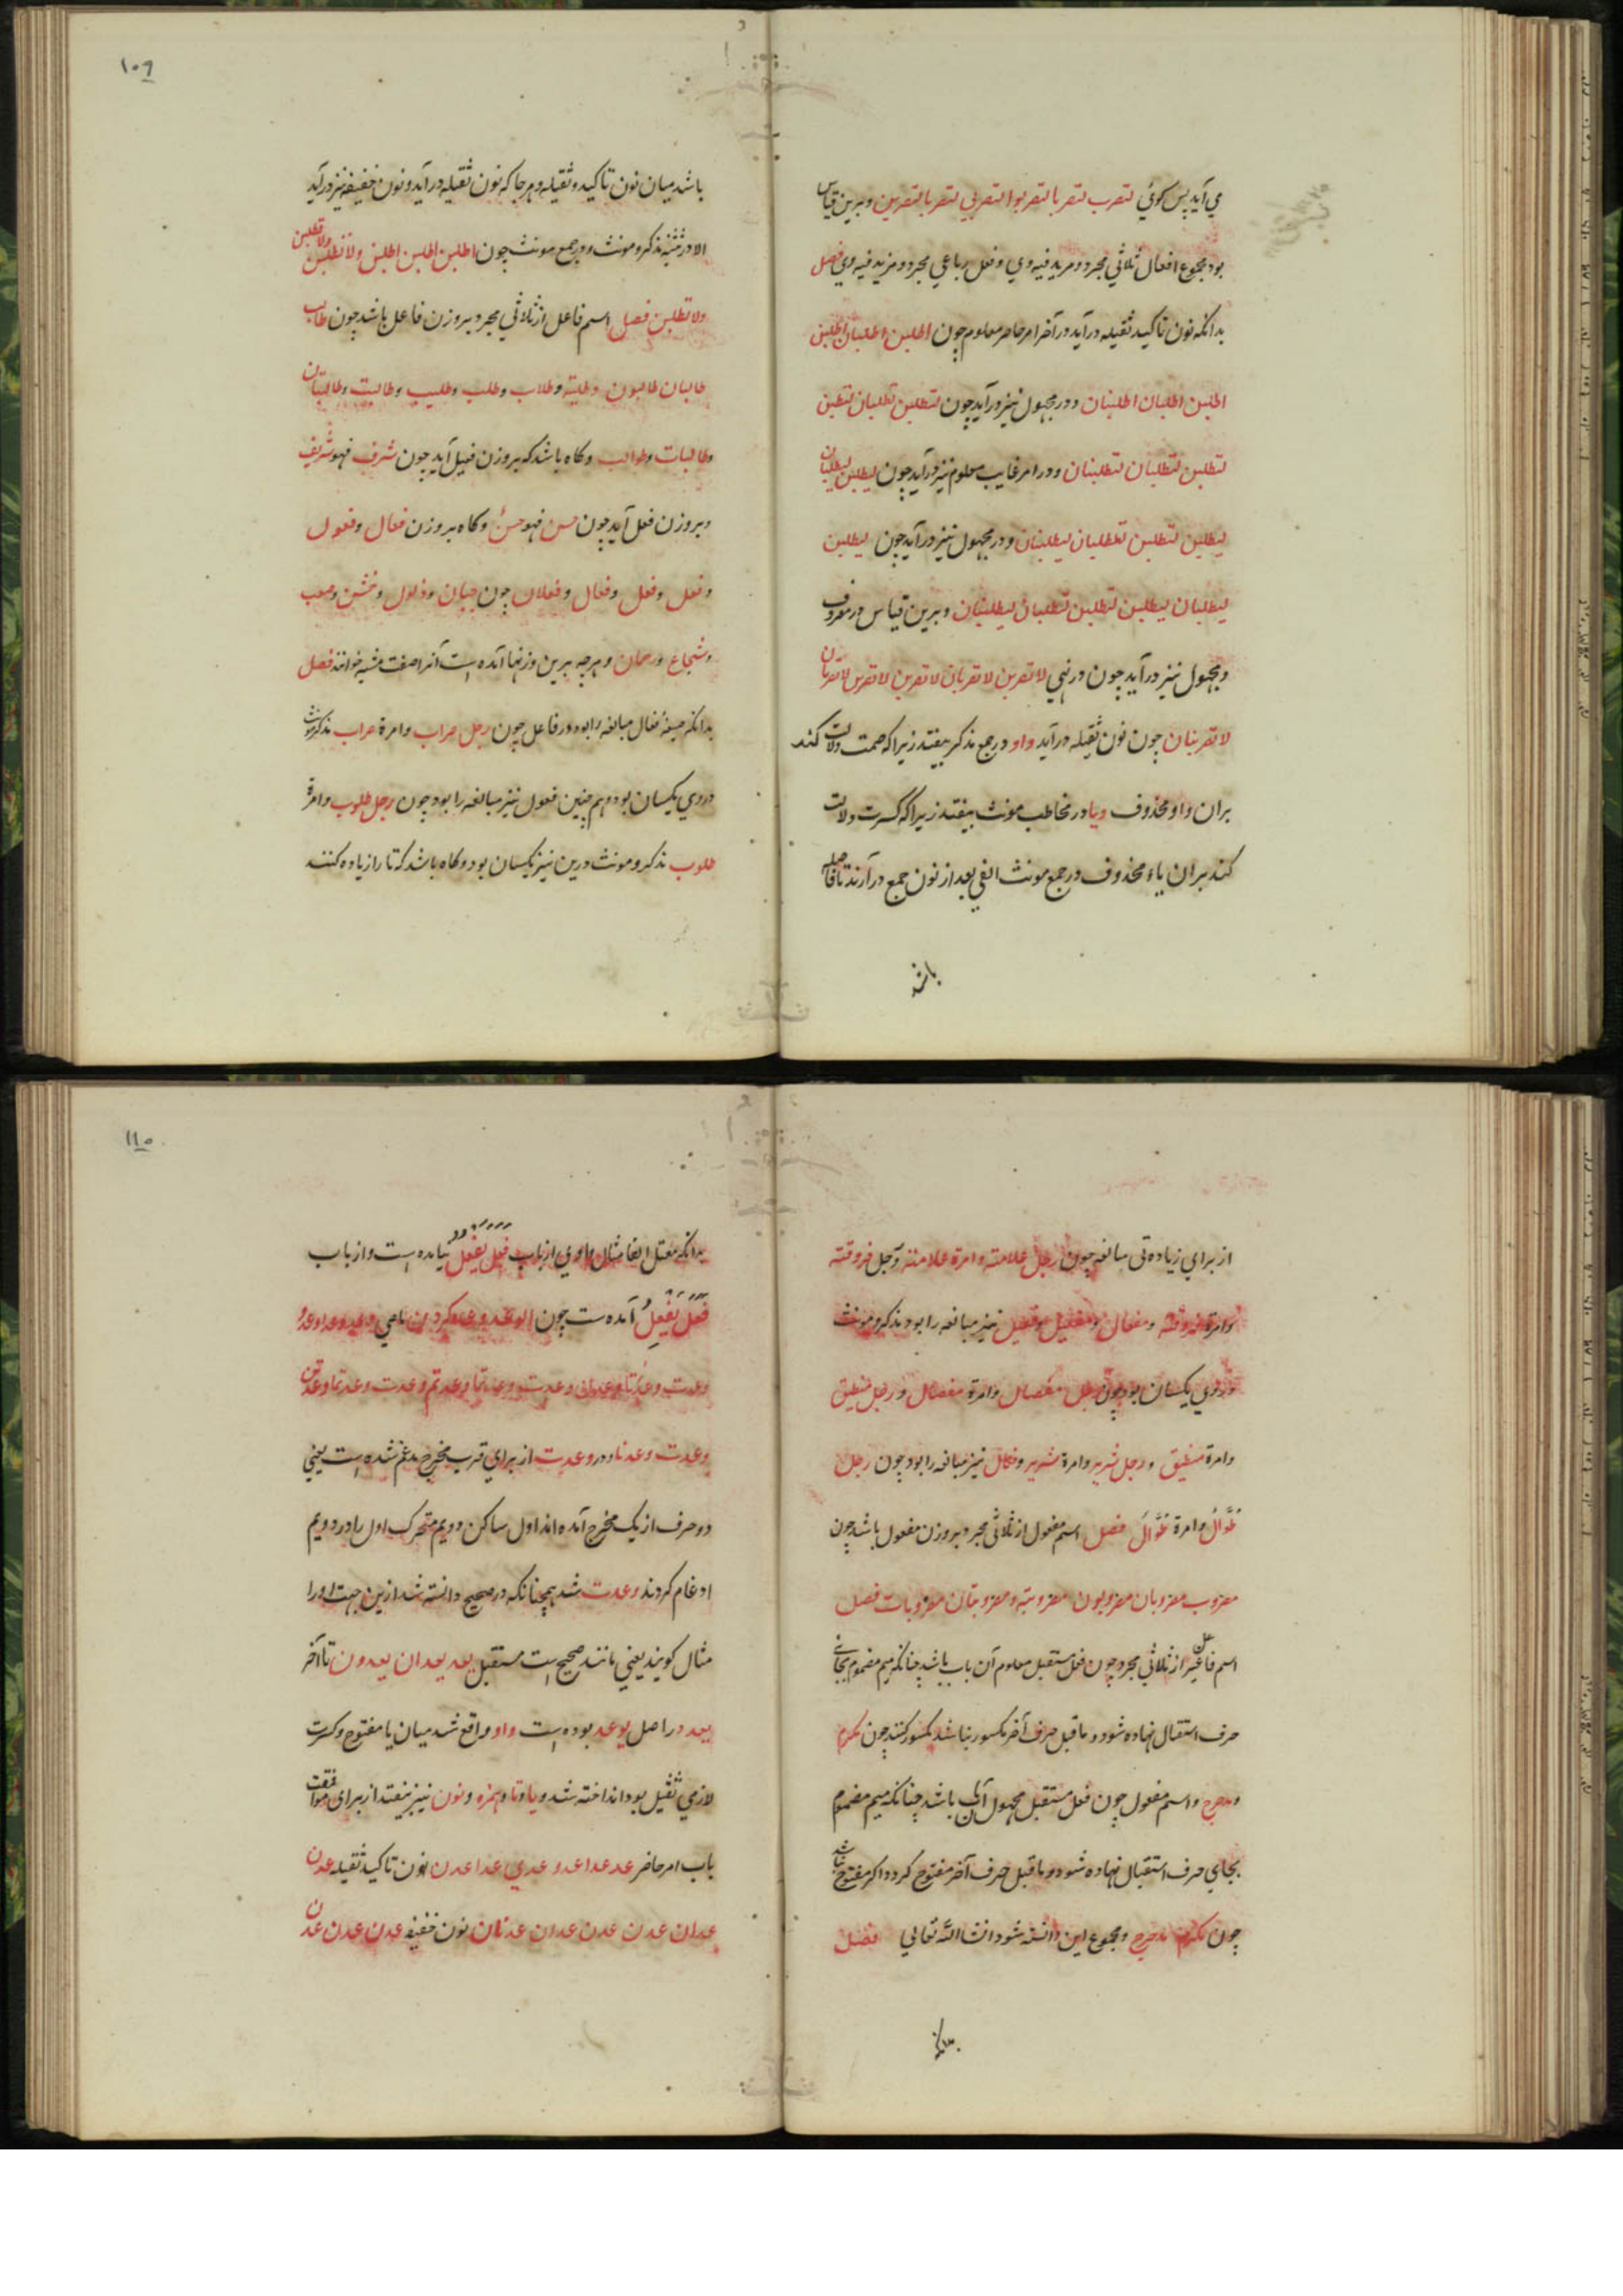 می آید پس کوئی لتضرب لتضربا لتضربوا لتضربی لتضربا لتضربن وبرین قیاس
بود مجموع افعال ثلاثی مجرد ومزید فیه وی وفعل رباعی مجرد ومزید فیه وی فصل
بدانکه نون تاکید ثقیله درآید درآخر امر حاضر معلوم چون اطلبن اطلبان اطلبن
اطلبن اطلبان اطلبنان ودر مجهول نیز درآید چون لتطلبن لتطلبان لتطلبن
لتطلبن لتطلبان لتطلبنان ودر امر غایب معلوم نیز درآید چون لیطلبن لیطلبان
لیطلبن لتطلبن لتطلبان لیطلبنان ودر مجهول نیز درآید چون لیطلبن
لیطلبان لیطلبن لتطلبن لتطلبان لیطلبنان وبرین قیاس در معروف
ومجهول نیز درآید چون در نهی لا تضربن لا تضربان لا تضربن لا تضربن لا تضربان
لا تضربنان چون نون ثقیله درآید واو درجمع مذکر بیفتد زیرا که ضمت دلالت کند
بران واو محذوف ویا در مخاطب مونث بیفتد زیرا که کسرت دلالت
کند بران یاء محذوف درجمع مونث الفی بعد از نون جمع درآرند تا فاصله
باشد
۱۰۹
باشد میان نون تاکید وثقیله وهر جا که نون ثقیله درآید ونون خفیفه نیز درآید
الا در تثنیه مذکر ومونث ودرجمع مونث چون اطلبن اطلبن اطلبن ولا تطلبن ولا تطلبن
ولا تطلبن فصل اسم فاعل از ثلاثی مجرد بروزن فاعل باشد چون طالب
طالبان طالبون وطلبة وطلاب وطلب وطلیب وطالبت وطالبتان
وطالبات وطوالب وکاه باشد که بروزن فعیل آید چون شرف فهو شریف
وبروزن فعل آید چون حسن فهو حسن وکاه بروزن فعال وفعول
وفعل وفعل وفعال وفعلان چون جبان وذلول وخشن وصعب
وشجاع ورحمان وهرچه برین وزنها آمده است آنرا صفت مشبه خوانند فصل
بدانکه صیغهٔ فعال مبالغه را بود در فاعل چون رجل ضراب وامرة ضراب مذکر ومونث
دروی یکسان بود وهم چنین فعول نیز مبالغه را بود چون رجل طلوب وامرة
طلوب مذکر ومونث درین نیز یکسان بود وکاه باشد که تا را زیاده کنند
از برای زیادتی مبالغه چون رجل علامته وامرة علامته ورجل فروقته
وامرة فروقته ومفعال ومفعیل وفعیل نیز مبالغه را بود مذکر ومونث
دروی یکسان بود چون رجل مفضال وامرة مفضال ورجل منطیق
وامرة منطیق ورجل شریر وامرة شریر وفعال نیز مبالغه را بود چون رجل
طوال وامرة طوال فصل اسم مفعول از ثلاثی مجرد بروزن مفعول باشد چون
مضروب مضروبان مضروبون مضروبته ومضروبتان مضروبات فصل
اسم فاعل از غیر ثلاثی مجرد چون فعل مستقبل معلوم آن باب باشد چنانکه میم مضموم بجای
حرف استقبال نهاده شود وما قبل حرف آخر مکسور بباشد مکسور کنند چون مکرم
ومدحرج واسم مفعول چون فعل مستقبل مجهول آن باب باشد چنانکه میم مضموم
بجای حرف استقبال نهاده شود وما قبل حرف آخر مفتوح کردد اکر مفتوح نباشد
چون مکرم مدحرج ومجموع این دانسته شود انشا الله تعالی فصل
بدانکه
۱۱۰
بدانکه معتل الفا مثال واوی از باب فَعَلَ یَفْعُلُ نیامده است واز باب
فَعَلَ یَفْعِلُ آمده است چون الوعد وعده کردن ماضی وعد وعدا وعدوا
وعدت وعدتا وعدن وعدت وعدتما وعدتم وعدت وعدتما وعدتن
وعدت وعدنا ودر وعدت از برای قرب مخرج مدغم شده است یعنی
دو حرف از یک مخرج آمده اند اول ساکن ودویم متحرک اول را در دویم
ادغام کردند وعدت شد همچنانکه در صحیح دانسته شد ازین جهت اورا
مثال کویند یعنی مانند صحیح است مستقبل یعد یعدان یعدون تا آخر
یعد در اصل یوعد بوده است واو واقع شد میان یا مفتوح وکسرت
لازمی ثقیل بود انداخته شد وبا وتا وهمزه ونون نیز بیفتد از برای موافقت
باب امر حاضر عد عدا عدوا عدی عدا عدن نون تاکید ثقیله عدن
عدان عدن عدن عدان عدنان نون خفیفه عدن عدن عدن